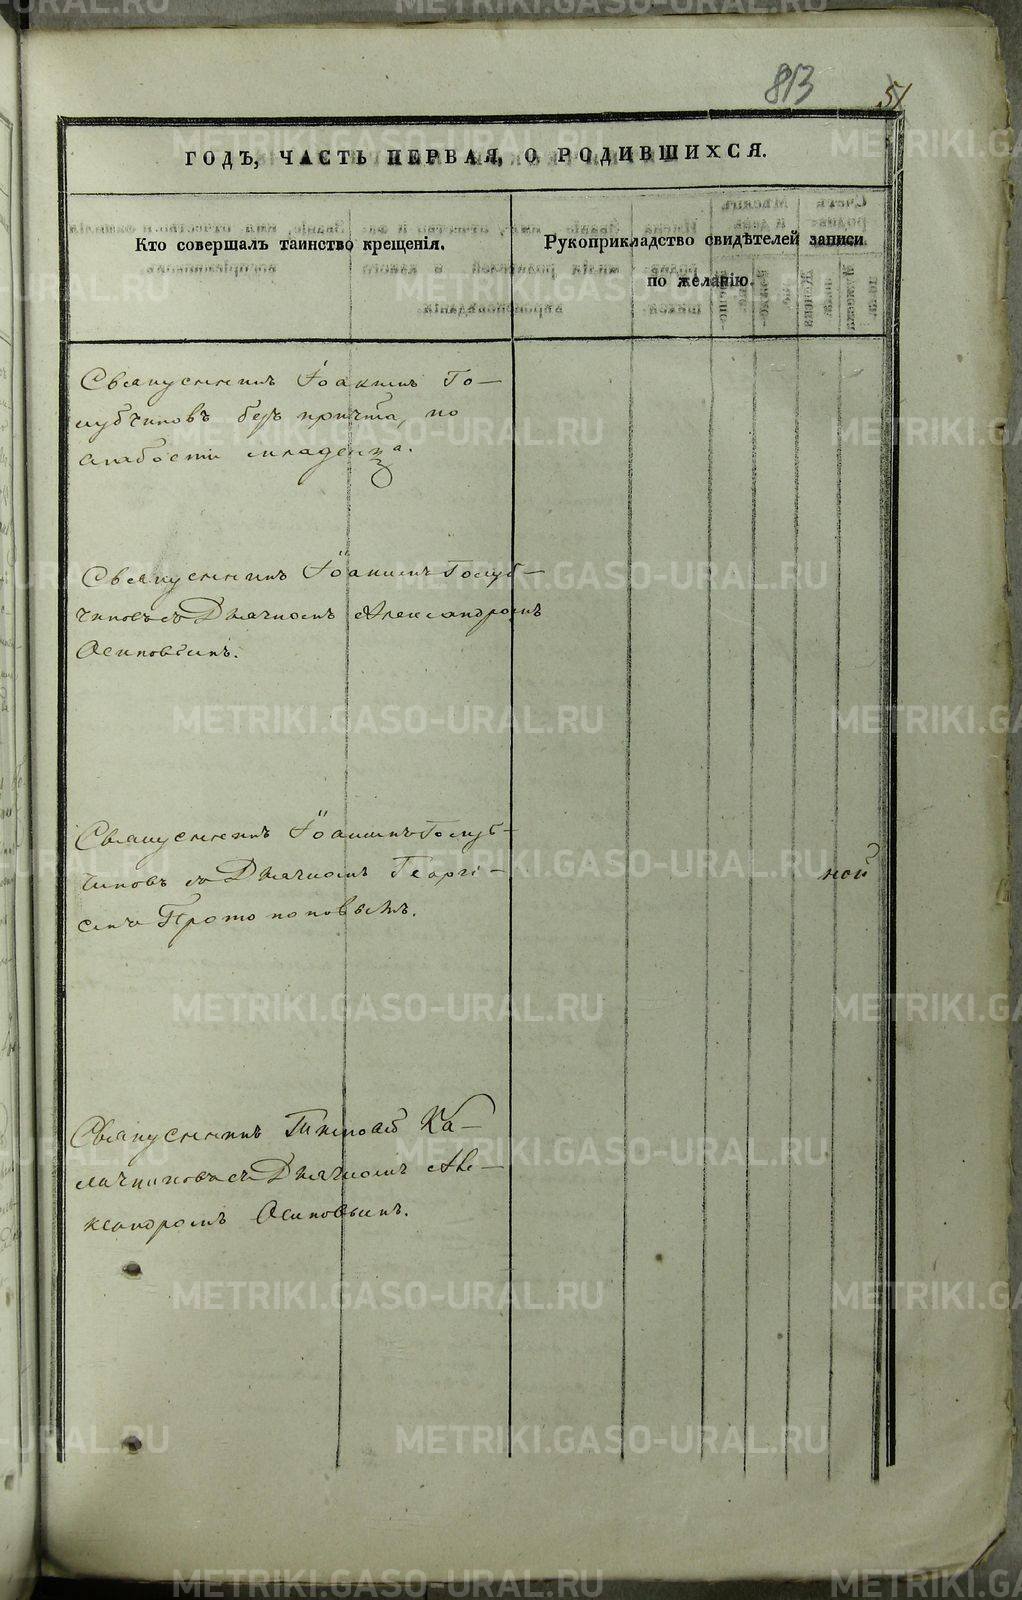 813
51
ГОДЪ, ЧАСТЬ ПЕРВАЯ, О РОДИВШИХСЯ.
Кто совершалъ таинство крещенія.
Рукоприкладство свидѣтелей записи
по желанію.
Священникъ Іоакимъ Го-
лубчиковъ безъ причта, по
слабости младенца.
Священникъ Іоакимъ Голуб-
чиковъ съ Дьячкомъ Александромъ
Осиповымъ.
Священникъ Іоакимъ Голуб-
чиковъ съ Дьячкомъ Георгі-
емъ Протопоповымъ.
ной
Священникъ Тимофей Ка-
лачниковъ съ Дьячкомъ Але-
ксандромъ Осиповымъ.
METRIKI.GASO-URAL.RU